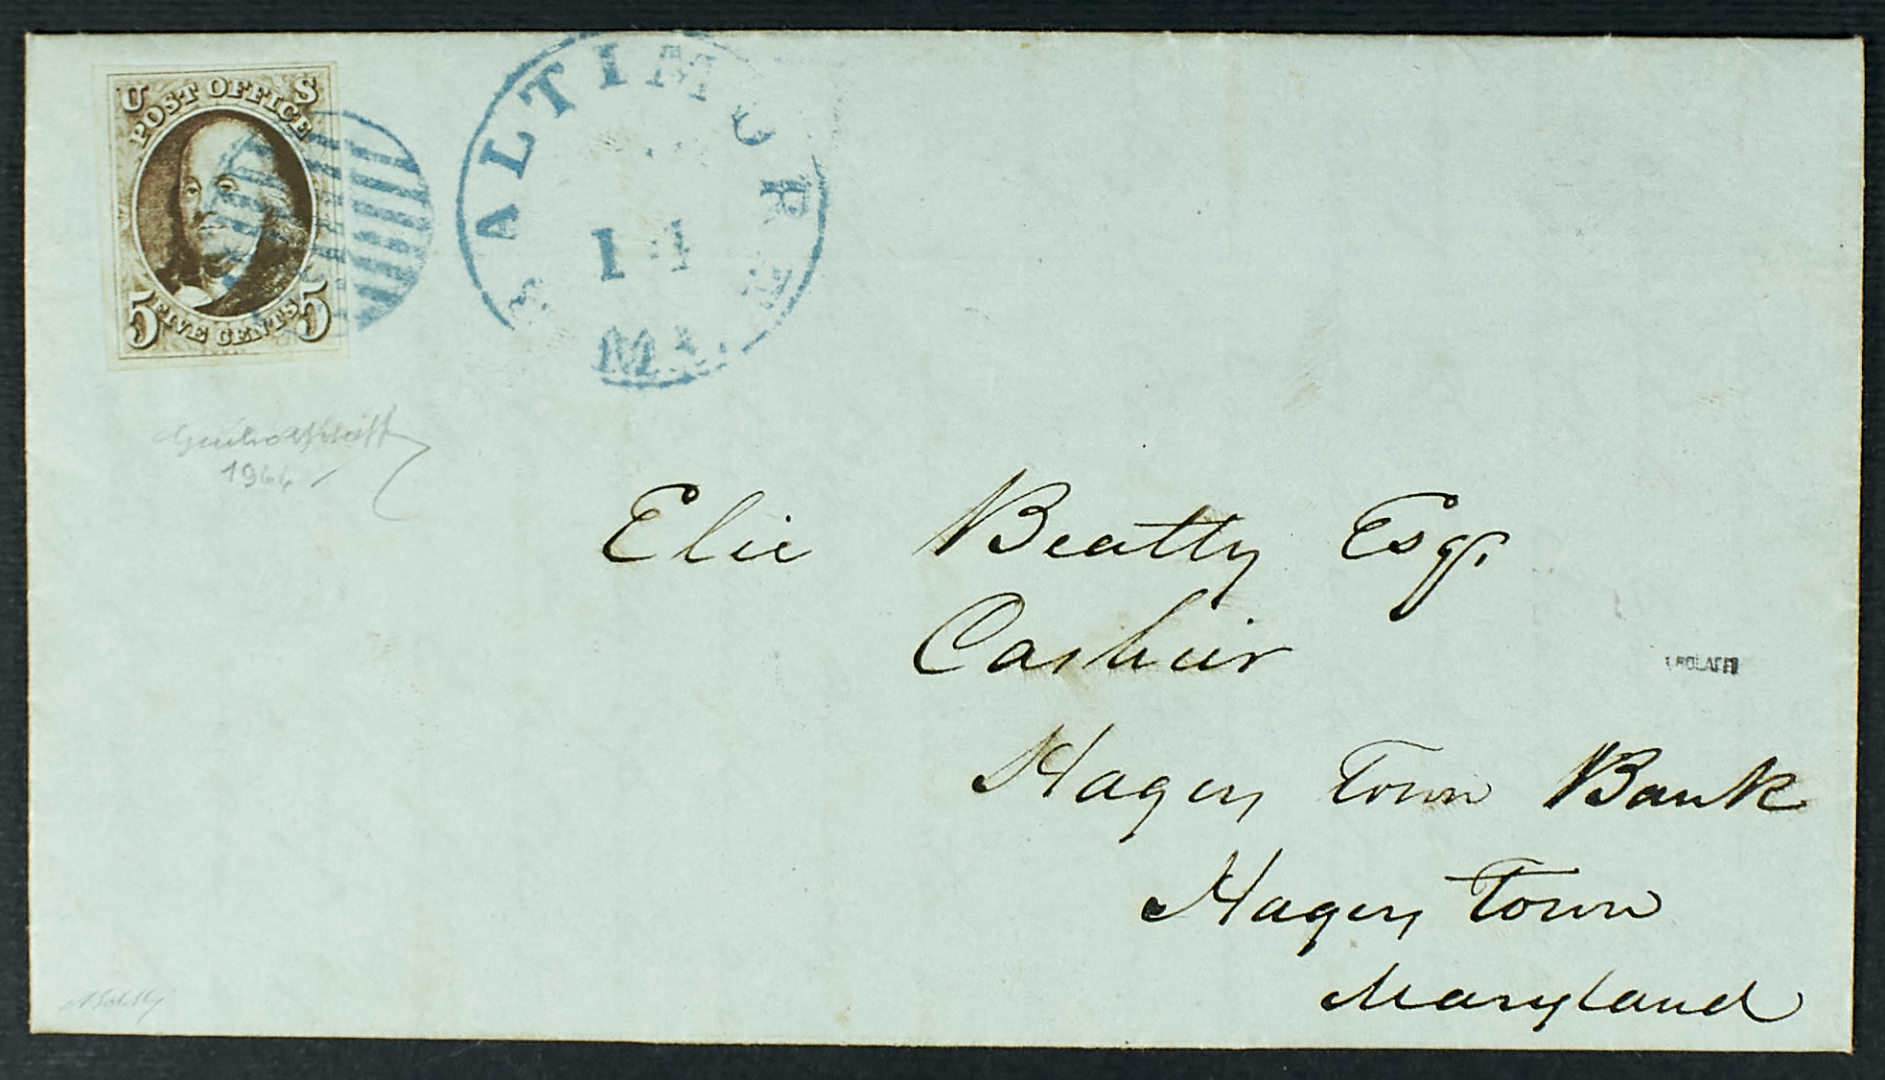 U S
POST OFFICE
5 FIVE CENTS 5
BALTIMORE
14
MD.
1964
Elie Beatty Esqr.
Cashier
Hagers Town Bank
Hagers Town
Maryland